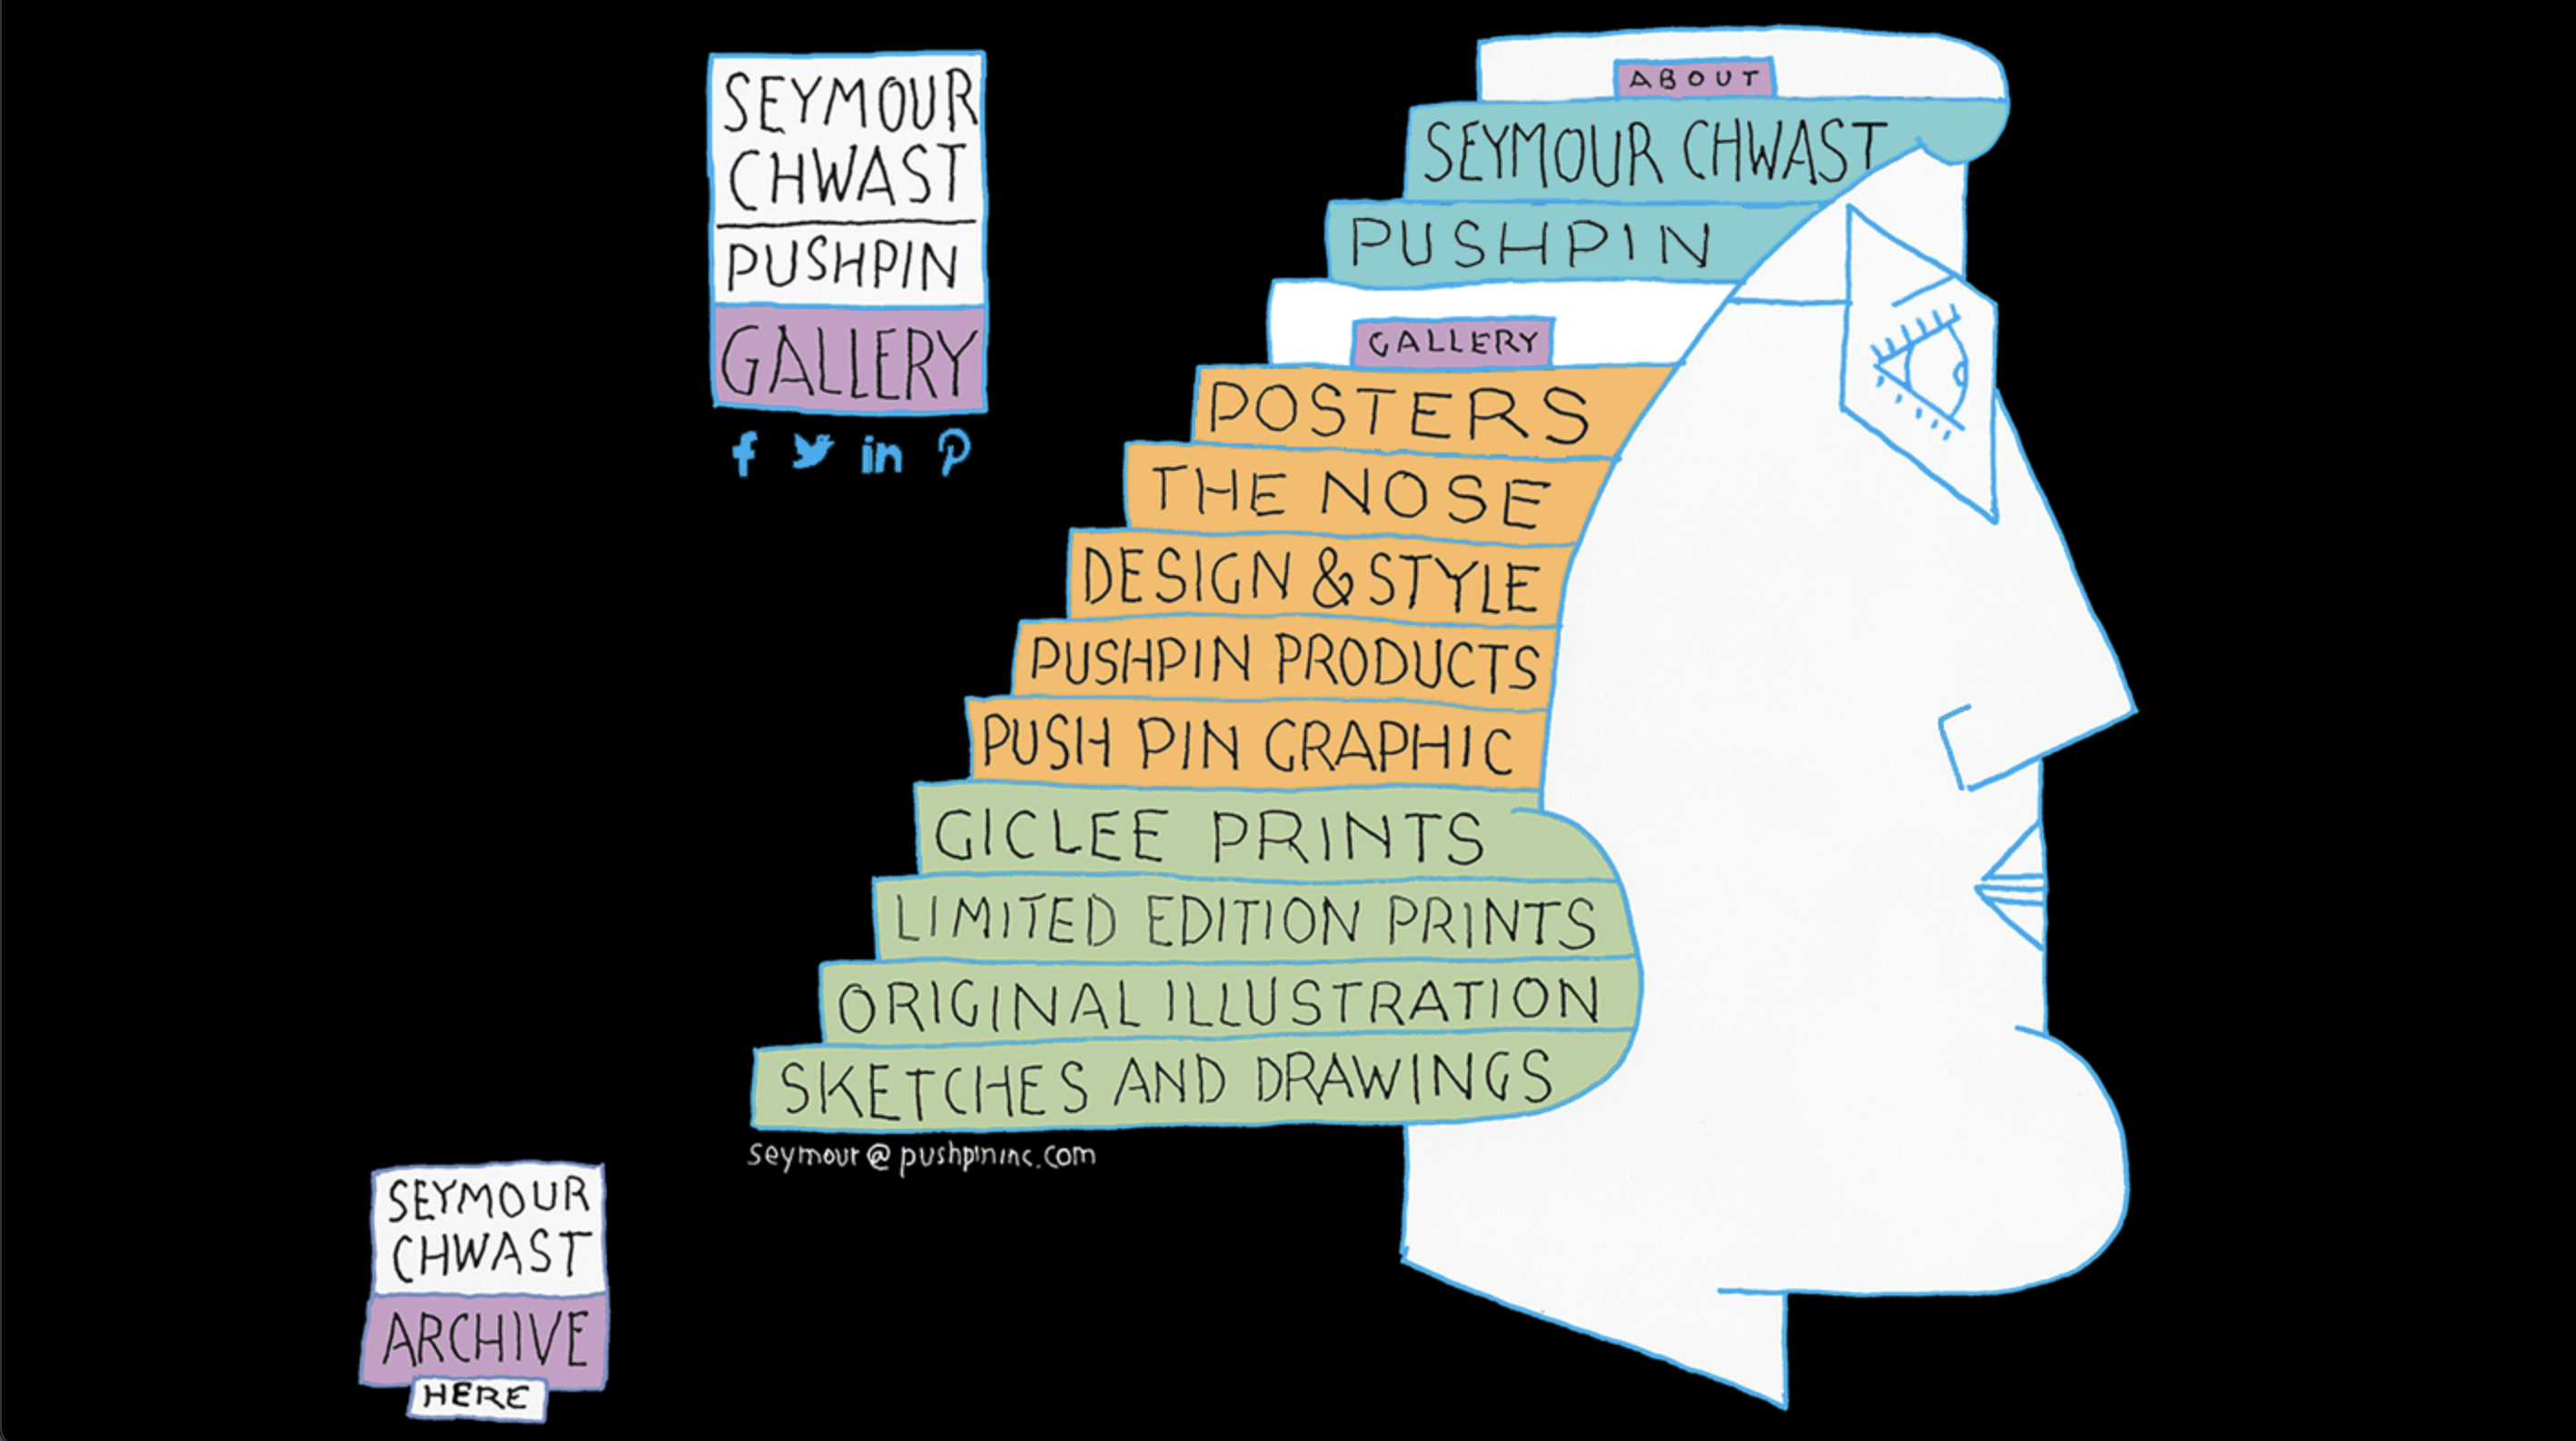 SEYMOUR
CHWAST
PUSHPIN
GALLERY
ABOUT
SEYMOUR CHWAST
PUSHPIN
GALLERY
POSTERS
THE NOSE
DESIGN & STYLE
PUSHPIN PRODUCTS
PUSH PIN GRAPHIC
GICLEE PRINTS
LIMITED EDITION PRINTS
ORIGINAL ILLUSTRATION
SKETCHES AND DRAWINGS
seymour@pushpininc.com
SEYMOUR
CHWAST
ARCHIVE
HERE